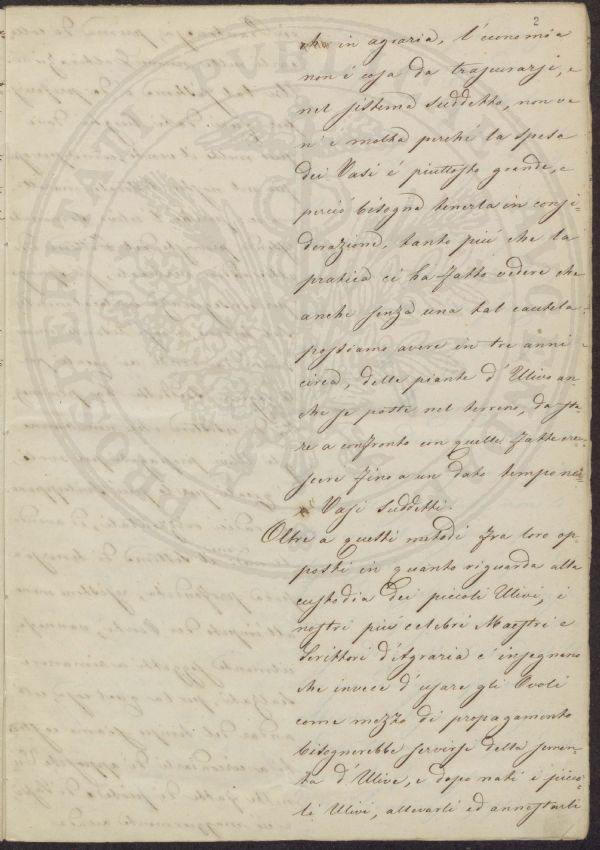 2
che in agraria, l'economia
non é cosa da trascurarsi, e
nel sistema suddetto, non ve
n'é molta perché la spesa
dei Vasi é piuttosto grande, e
perció bisogna tenerla in consi-
derazione, tanto piú che la
pratica ci ha fatto vedere che
anche senza una tal cautela
possiamo avere in tre anni
circa, delle piante d'Ulivo an
che se poste nel terreno, da sta
re a confronto con quelle fatte cre-
scere fino a un dato tempo nei
Vasi suddetti.
Oltre a questi metodi fra loro op
posti in quanto riguarda alla
custodia dei piccoli Ulivi, i
nostri piú celebri Maestri e
Scrittori d'Agraria c'insegnano
che invece d'usare gli Ovoli
come mezzo di propagamento
bisognerebbe servirsi della semen-
ta d'Ulive, e dopo nati i picco-
li Ulivi, allevarli ed annestarli
PROSPERITATI PUBLICAE